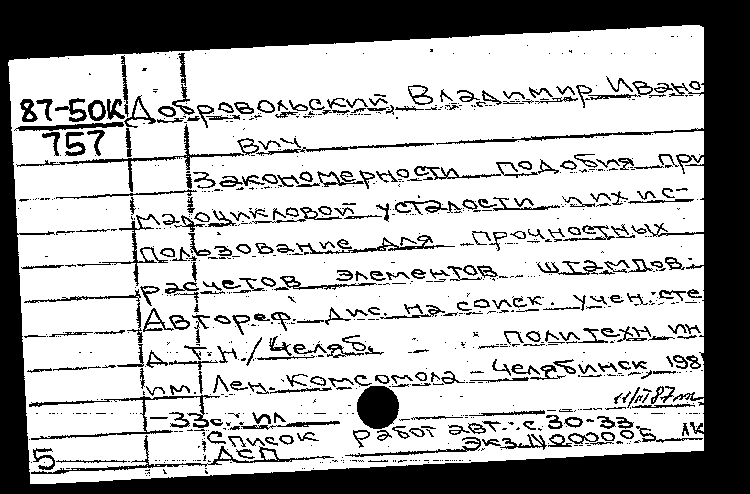 87-50К Добровольский, Владимир Ивано
757 вич
Закономерности подобия при
малоцикловой усталости и их ис-
пользование для прочностных
расчетов элементов штампов:
Автореф. дис. на соиск. учен. сте
д. т. н. / Челяб. политехн. ин
им. Лен. комсомола - Челябинск, 198
-33 с.: ил
Список работ авт.: с. 30-33.
ДСП Экз. N 00006
5